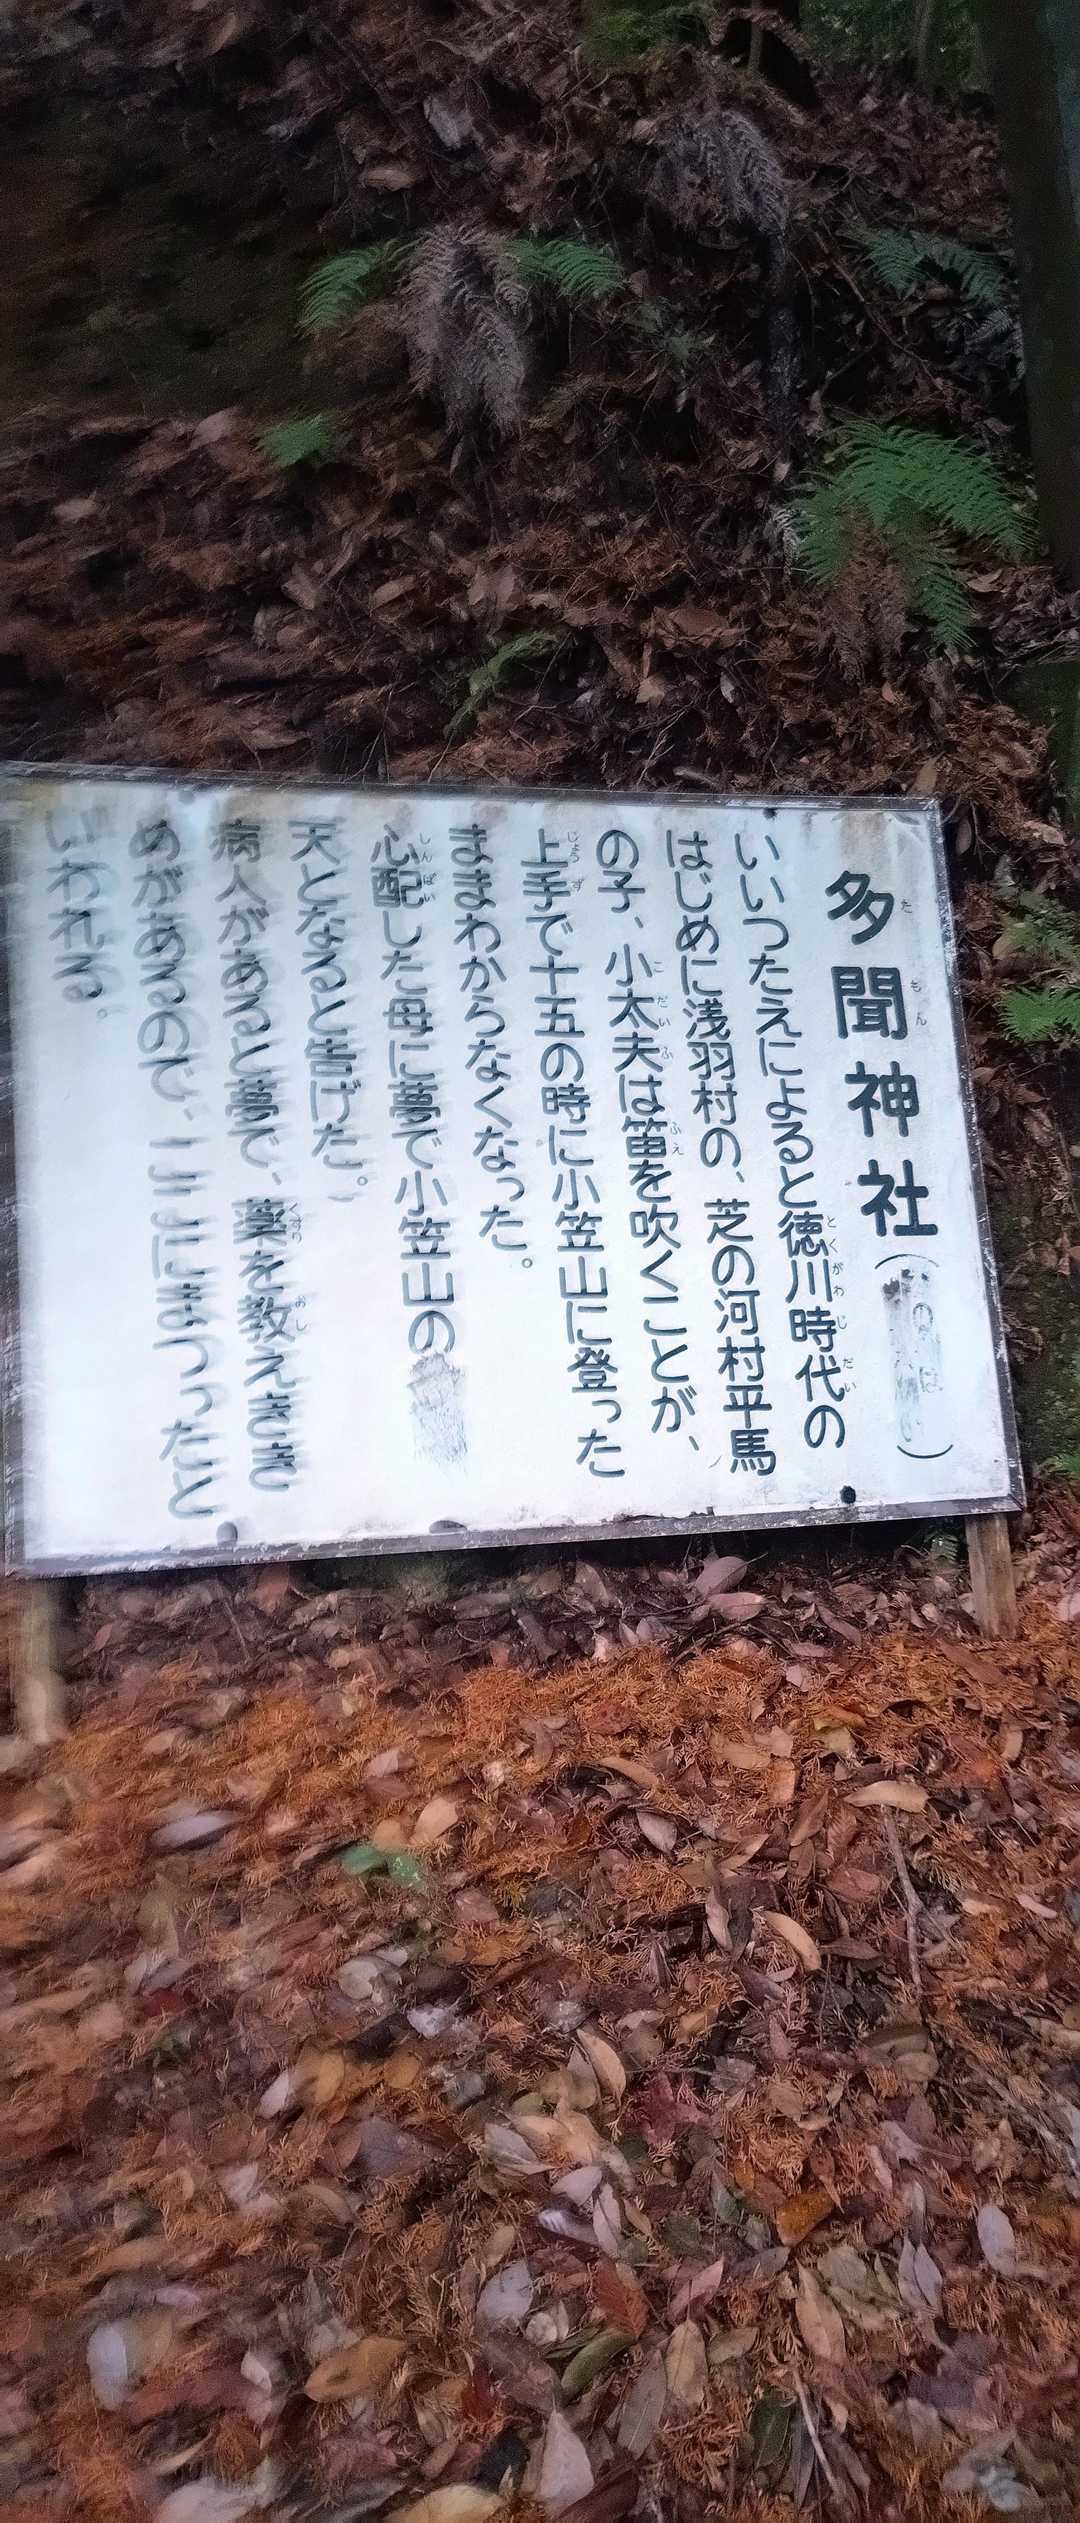 多聞神社
いいつたえによると徳川時代の
はじめに浅羽村の、芝の河村平馬
の子、小太夫は笛を吹くことが、
上手で十五の時に小笠山に登った
ままわからなくなった。
心配した母に夢で小笠山の
天となると告げた。
病人があると夢で、薬を教えきき
めがあるので、ここにまつったと
いわれる。